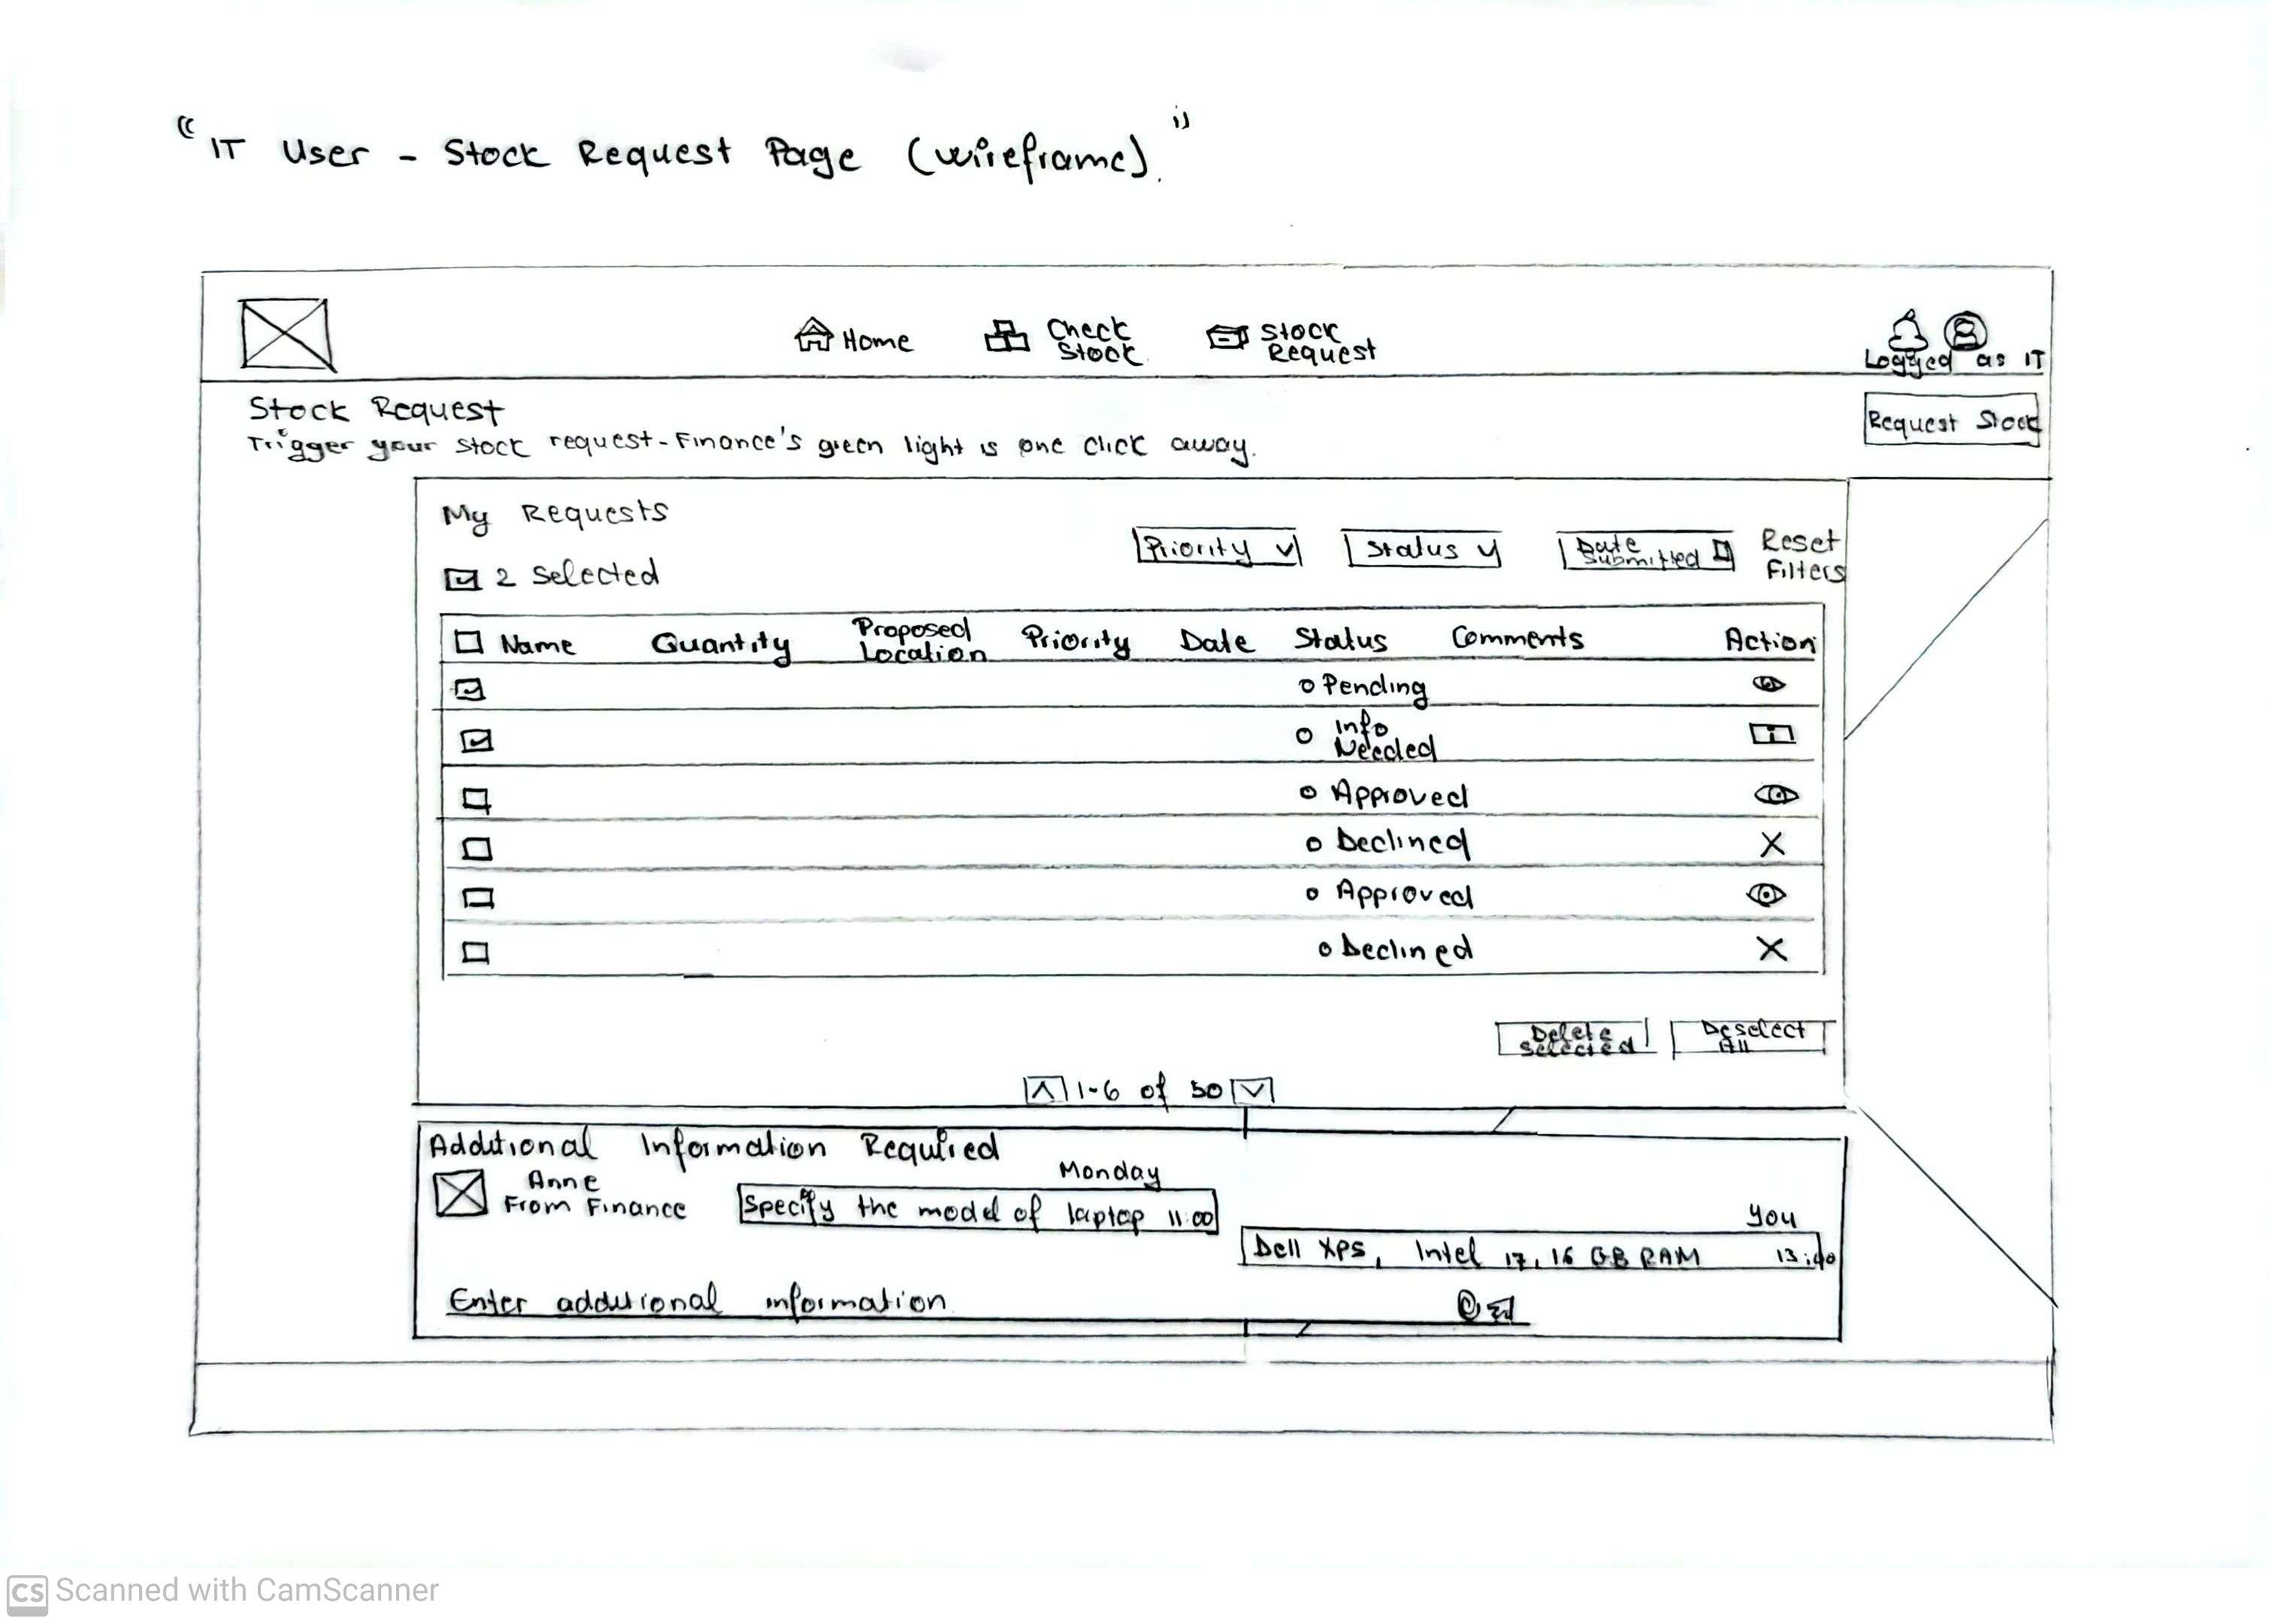 "IT User - Stock Request Page (wireframe)."
Home
Check Stock
Stock Request
Logged as IT
Stock Request
Request Stock
Trigger your stock request - Finance's green light is one click away.
My Requests
Priority
Status
Date Submitted
Reset Filters
2 selected
Name Quantity Proposed Location Priority Date Status Comments Action
Pending
Info Needed
i
Approved
Declined
Approved
Declined
Delete Selected
Deselect All
1-6 of 50
Additional Information Required
Monday
Anne
From Finance
Specify the model of laptop 11:00
You
Dell XPS, Intel i7, 16 GB RAM 13:40
Enter additional information
CS Scanned with CamScanner